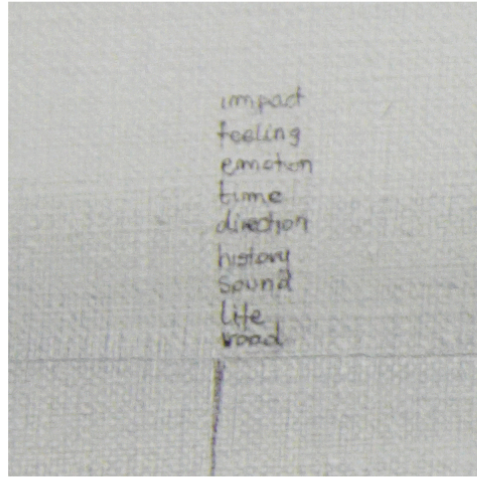 impact
feeling
emotion
time
direction
history
sound
life
road